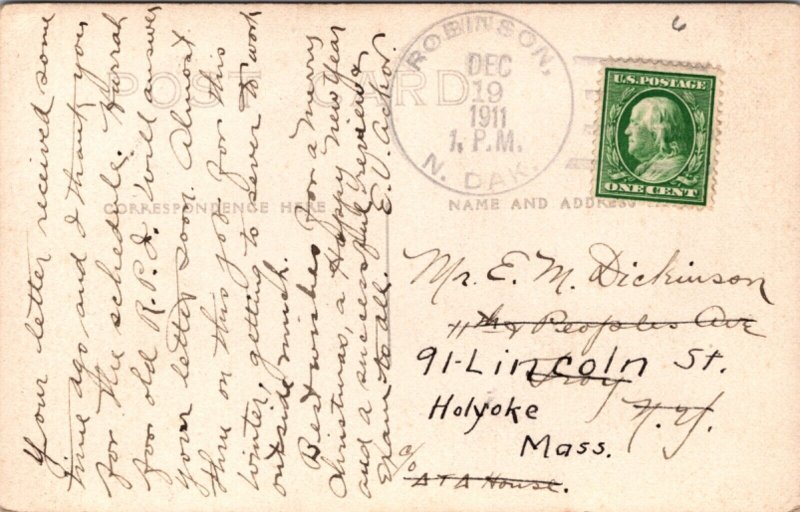 6
POST CARD
ROBINSON,
DEC
19
1911
1. P.M.
N. DAK.
U.S. POSTAGE
ONE CENT
CORRESPONDENCE HERE
NAME AND ADDRESS
Your letter received some
time ago and I thank you
for the schedule. Hurrah
for old R.P.I. Will answer
your letter soon. Almost
thru on this job for this
winter, getting to sever to work
outside much.
Best wishes for a merry
Christmas, a Happy New Year
and a successful review &
Exam to all. E. V. Actor.
Mr. E. M. Dickinson
1149 Peoples Ave
91-Lincoln St.
Troy
Holyoke N.Y.
Mass.
c/o
ATA House.